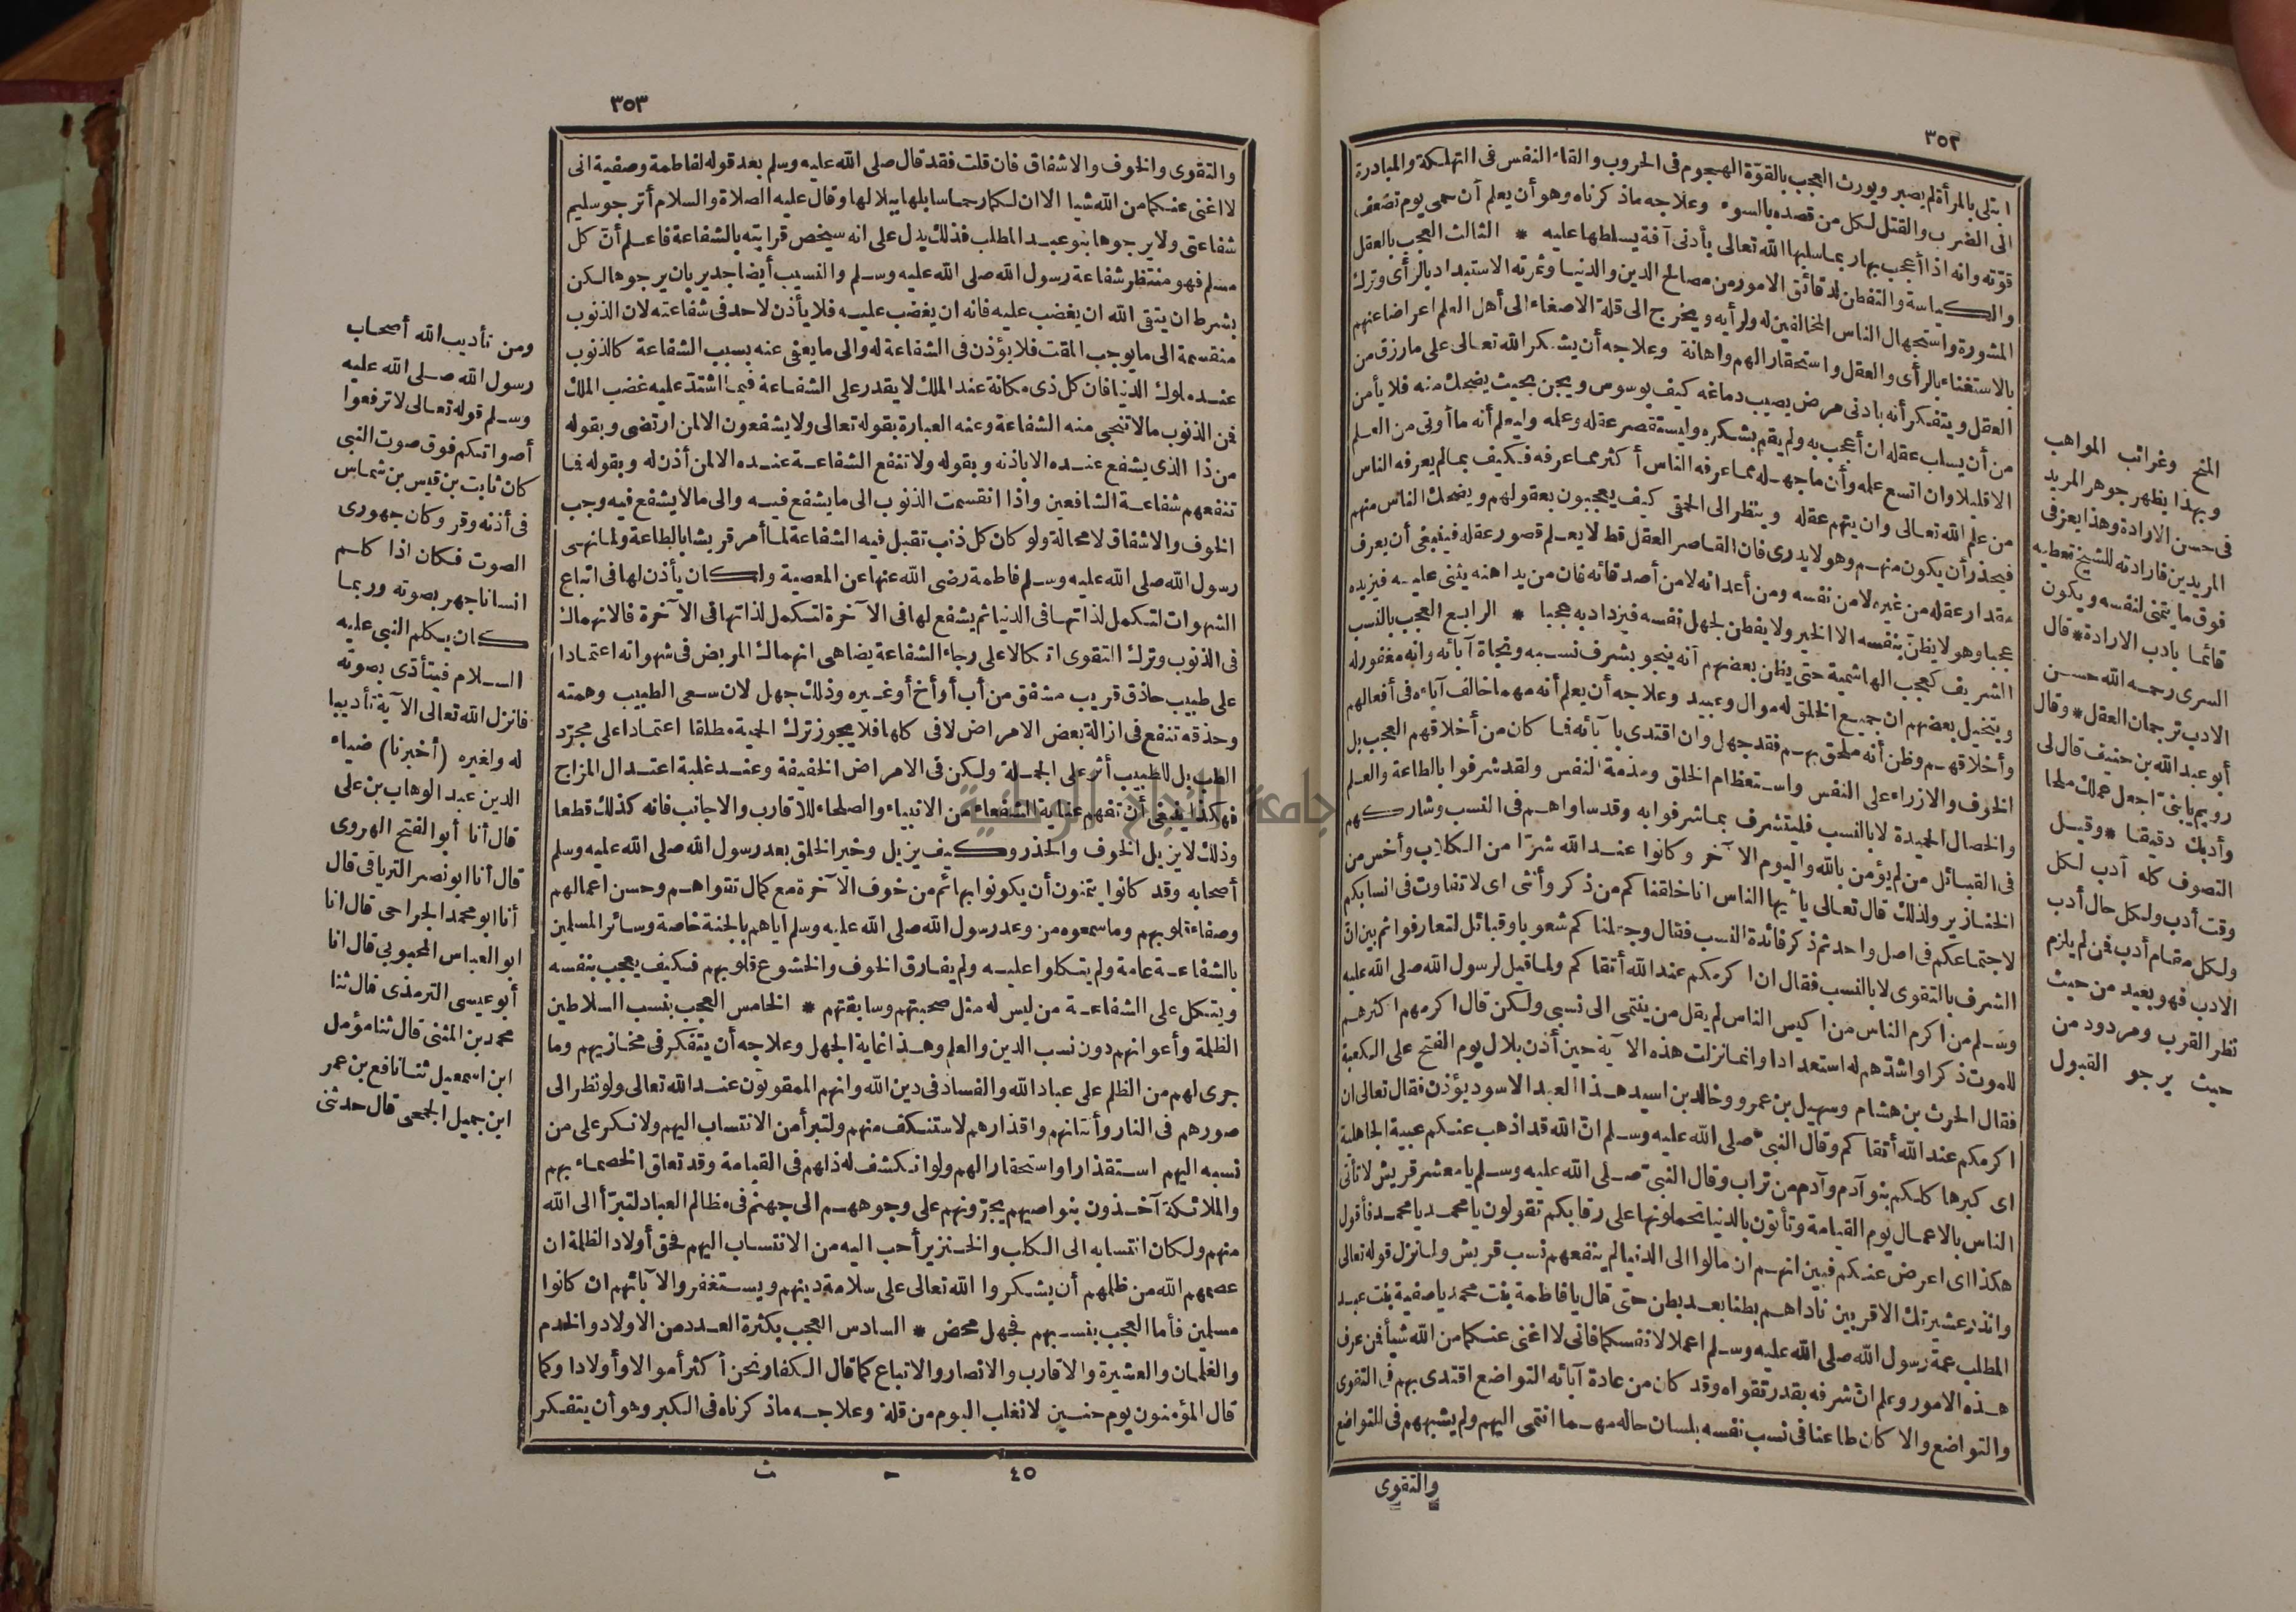 ٣٥٢
ابتلى بالمرأة لم يصبر ويورث العجب بالقوّة الهجوم فى الحروب والقاء النفس فى التهلكة والمبادرة
الى الضرب والقتل لكل من قصده بالسوء وعلاجه ماذكرناه وهو أن يعلم أن حمى يوم تضعف
قوّته وانه اذا أعجب بها ربما سلبها الله تعالى بأدنى آفة يسلطها عليه * الثالث العجب بالعقل
والكياسة والتفطن لدقائق الامور من مصالح الدين والدنيا وثمرته الاستبداد بالرأى وترك
المشورة واستجهال الناس المخالفين له ولرأيه ويخرج الى قلة الاصغاء الى أهل العلم اعراضا عنهم
بالاستغناء بالرأى والعقل واستحقارا لهم واهانة وعلاجه أن يشكر الله تعالى على مارزق من
العقل ويتفكر أنه بادنى مرض يصيب دماغه كيف يوسوس ويجن بحيث يضحك منه فلا يأمن
من أن يسلب عقله ان أعجب به ولم يقم بشكره وليستقصر عقله وعلمه وليعلم أنه ما أوتى من العلم
الاقليلا وان اتسع علمه وأن ماجهله مما عرفه الناس أكثر مما عرفه فكيف بمالم يعرفه الناس
من علم الله تعالى وان يتهم عقله وينظر الى الحمقى كيف يعجبون بعقولهم ويضحك الناس منهم
فيحذر أن يكون منهم وهو لا يدرى فان القاصر العقل قط لا يعلم قصور عقله فينبغى أن يعرف
مقدار عقله من غيره لا من نفسه ومن أعدائه لا من أصدقائه فان من يداهنه يثنى عليه فيزيده
عجبا وهو لا يظنّ بنفسه الا الخير ولا يفطن لجهل نفسه فيزداد به عجبا * الرابع العجب بالنسب
الشريف كعجب الهاشمية حتى يظن بعضهم أنه ينجو بشرف نسبه ونجاة آبائه وانه مغفور له
ويتخيل بعضهم ان جميع الخلق له موال وعبيد وعلاجه أن يعلم أنه مهما خالف آباءه فى أفعالهم
وأخلاقهم وظن أنه ملحق بهم فقد جهل وان اقتدى بآبائه فما كان من أخلاقهم العجب بل
الخوف والازراء على النفس واستعظام الخلق ومذمة النفس ولقد شرفوا بالطاعة والعلم
والخصال الحميدة لا بالنسب فليتشرف بما شرفوا به وقد ساواهم فى النسب وشاركهم
فى القبائل من لم يؤمن بالله واليوم الآخر وكانوا عند الله شرّا من الكلاب وأخس من
الخنازير ولذلك قال تعالى يا أيها الناس انا خلقناكم من ذكر وأنثى اى لا تفاوت فى انسابكم
لاجتماعكم فى اصل واحد ثم ذكر فائدة النسب فقال وجعلناكم شعوبا وقبائل لتعارفوا ثم بين انّ
الشرف بالتقوى لا بالنسب فقال ان اكرمكم عند الله أتقاكم ولما قيل لرسول الله صلى الله عليه
وسلم من اكرم الناس من اكيس الناس لم يقل من ينتمى الى نسبى ولكن قال اكرمهم اكثرهم
للموت ذكرا واشدّهم له استعدادا وانما نزلت هذه الآية حين أذن بلال يوم الفتح على الكعبة
فقال الحرث بن هشام وسهيل بن عمرو وخالد بن اسيد هذا العبد الاسود يؤذن فقال تعالى ان
اكرمكم عند الله أتقاكم وقال النبى صلى الله عليه وسلم انّ الله قد اذهب عنكم عبية الجاهلية
اى كبرها كلكم بنو آدم وآدم من تراب وقال النبىّ صلى الله عليه وسلم يا معشر قريش لا تأتى
الناس بالاعمال يوم القيامة وتأتون بالدنيا تحملونها على رقابكم تقولون يا محمد يا محمد فأقول
هكذا اى اعرض عنكم فبين انهم ان مالوا الى الدنيا لم ينفعهم نسب قريش ولما نزل قوله تعالى
وانذر عشيرتك الاقربين ناداهم بطنا بعد بطن حتى قال يا فاطمة بنت محمد يا صفية بنت عبد
المطلب عمة رسول الله صلى الله عليه وسلم اعملا لانفسكما فانى لا اغنى عنكما من الله شيأ فمن عرف
هذه الامور وعلم انّ شرفه بقدر تقواه وقد كان من عادة آبائه التواضع اقتدى بهم فى التقوى
والتواضع والا كان طاعنا فى نسب نفسه بلسان حاله مهما انتمى اليهم ولم يشبههم فى التواضع
والتقوى
المنح وغرائب المواهب
وبهذا يظهر جوهر المريد
فى حسن الارادة وهذا يعز فى
المريدين فارادته للشيخ تعطيه
فوق ما يتمنى لنفسه ويكون
قائما بادب الارادة * قال
السرى رحمه الله حسن
الادب ترجمان العقل * وقال
أبو عبد الله بن حنيف قال لى
رويم يا بنىّ اجعل عملك ملحا
وأدبك دقيقا * وقيل
التصوف كله أدب لكل
وقت أدب ولكل حال أدب
ولكل مقام أدب فمن لم يلزم
الادب فهو بعيد من حيث
نظر القرب ومردود من
حيث يرجو القبول
٣٥٣
والتقوى والخوف والاشفاق فان قلت فقد قال صلى الله عليه وسلم بعد قوله لفاطمة وصفية انى
لا اغنى عنكما من الله شيا الا ان لكما رحما سابلها ببلالها وقال عليه الصلاة والسلام أترجو سليم
شفاعتى ولا يرجوها بنو عبد المطلب فذلك يدل على انه سيخص قرابته بالشفاعة فاعلم أنّ كل
مسلم فهو منتظر شفاعة رسول الله صلى الله عليه وسلم والنسيب أيضا جدير بان يرجوها لكن
بشرط ان يتقى الله ان يغضب عليه فانه ان يغضب عليه فلا يأذن لاحد فى شفاعته لان الذنوب
منقسمة الى ما يوجب المقت فلا يؤذن فى الشفاعة له والى ما يعفى عنه بسبب الشفاعة كالذنوب
عند ملوك الدنيا فان كل ذى مكانة عند الملك لا يقدر على الشفاعة فيما اشتدّ عليه غضب الملك
فمن الذنوب مالا تنجى منه الشفاعة وعنه العبارة بقوله تعالى ولا يشفعون الا لمن ارتضى وبقوله
من ذا الذى يشفع عنده الا باذنه وبقوله ولا تنفع الشفاعة عنده الا لمن أذن له وبقوله فما
تنفعهم شفاعة الشافعين واذا انقسمت الذنوب الى ما يشفع فيه والى مالا يشفع فيه وجب
الخوف والاشفاق لا محالة ولو كان كل ذنب تقبل فيه الشفاعة لما أمر قريشا بالطاعة ولما نهى
رسول الله صلى الله عليه وسلم فاطمة رضى الله عنها عن المعصية ولكان يأذن لها فى اتباع
الشهوات لتكمل لذاتها فى الدنيا ثم يشفع لها فى الآخرة لتكمل لذاتها فى الآخرة فالانهماك
فى الذنوب وترك التقوى اتكالا على رجاء الشفاعة يضاهى انهماك المريض فى شهواته اعتمادا
على طبيب حاذق قريب مشفق من أب أو أخ أو غيره وذلك جهل لان سعى الطبيب وهمته
وحذقه تنفع فى ازالة بعض الامراض لا فى كلها فلا يجوز ترك الحمية مطلقا اعتمادا على مجرّد
الطب بل للطبيب أثر على الجملة ولكن فى الامراض الخفيفة وعند غلبة اعتدال المزاج
فهكذا ينبغى أن تفهم عناية الشفعاء من الانبياء والصلحاء للاقارب والاجانب فانه كذلك قطعا
وذلك لا يزيل الخوف والحذر وكيف يزيل وخير الخلق بعد رسول الله صلى الله عليه وسلم
أصحابه وقد كانوا يتمنون أن يكونوا بهائم من خوف الآخرة مع كمال تقواهم وحسن اعمالهم
وصفاء قلوبهم وما سمعوه من وعد رسول الله صلى الله عليه وسلم اياهم بالجنة خاصة وسائر المسلمين
بالشفاعة عامة ولم يتكلوا عليه ولم يفارق الخوف والخشوع قلوبهم فكيف يعجب بنفسه
ويتكل على الشفاعة من ليس له مثل صحبتهم وسابقتهم * الخامس العجب بنسب السلاطين
الظلمة وأعوانهم دون نسب الدين والعلم وهذا غاية الجهل وعلاجه أن يتفكر فى مخازيهم وما
جرى لهم من الظلم على عباد الله والفساد فى دين الله وانهم الممقوتون عند الله تعالى ولو نظر الى
صورهم فى النار وأنتانهم واقذارهم لاستنكف منهم ولتبرأ من الانتساب اليهم ولانكر على من
نسبه اليهم استقذارا واستحقارا لهم ولو انكشف له ذلهم فى القيامة وقد تعلق الخصماء بهم
والملائكة آخذون بنواصيهم يجرّونهم على وجوههم الى جهنم فى مظالم العباد لتبرّأ الى الله
منهم ولكان انتسابه الى الكلب والخنزير أحب اليه من الانتساب اليهم فحق أولاد الظلمة ان
عصمهم الله من ظلمهم أن يشكروا الله تعالى على سلامة دينهم ويستغفروا لآبائهم ان كانوا
مسلمين فأما العجب بنسبهم فجهل محض * السادس العجب بكثرة العدد من الاولاد والخدم
والغلمان والعشيرة والاقارب والانصار والاتباع كما قال الكفار نحن أكثر أموالا وأولادا وكما
قال المؤمنون يوم حنين لا نغلب اليوم من قلة وعلاجه ماذكرناه فى الكبر وهو أن يتفكر
٤٥ ـ ث
ومن تأديب الله أصحاب
رسول الله صلى الله عليه
وسلم قوله تعالى لا ترفعوا
أصواتكم فوق صوت النبى
كان ثابت بن قيس بن شماس
فى أذنه وقر وكان جهورى
الصوت فكان اذا كلم
انسانا جهر بصوته وربما
كان يكلم النبى عليه
السلام فيتأذى بصوته
فانزل الله تعالى الآية تأديبا
له ولغيره (أخبرنا) ضياء
الدين عبد الوهاب بن على
قال أنا أبو الفتح الهروى
قال أنا ابو نصر الترياقى قال
أنا ابو محمد الجراحى قال انا
ابو العباس المحبوبى قال انا
أبو عيسى الترمذى قال ثنا
محمد بن المثنى قال ثنا مؤمل
ابن اسمعيل ثنا نافع بن عمر
ابن جميل الجمحى قال حدثنى
جامعة النجاح الوطنية